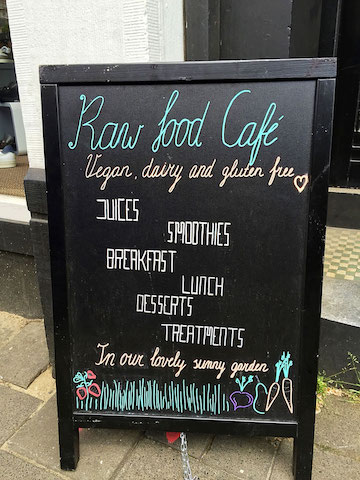 Raw food Café
Vegan, dairy and gluten free
JUICES
SMOOTHIES
BREAKFAST
LUNCH
DESSERTS
TREATMENTS
In our lovely sunny garden